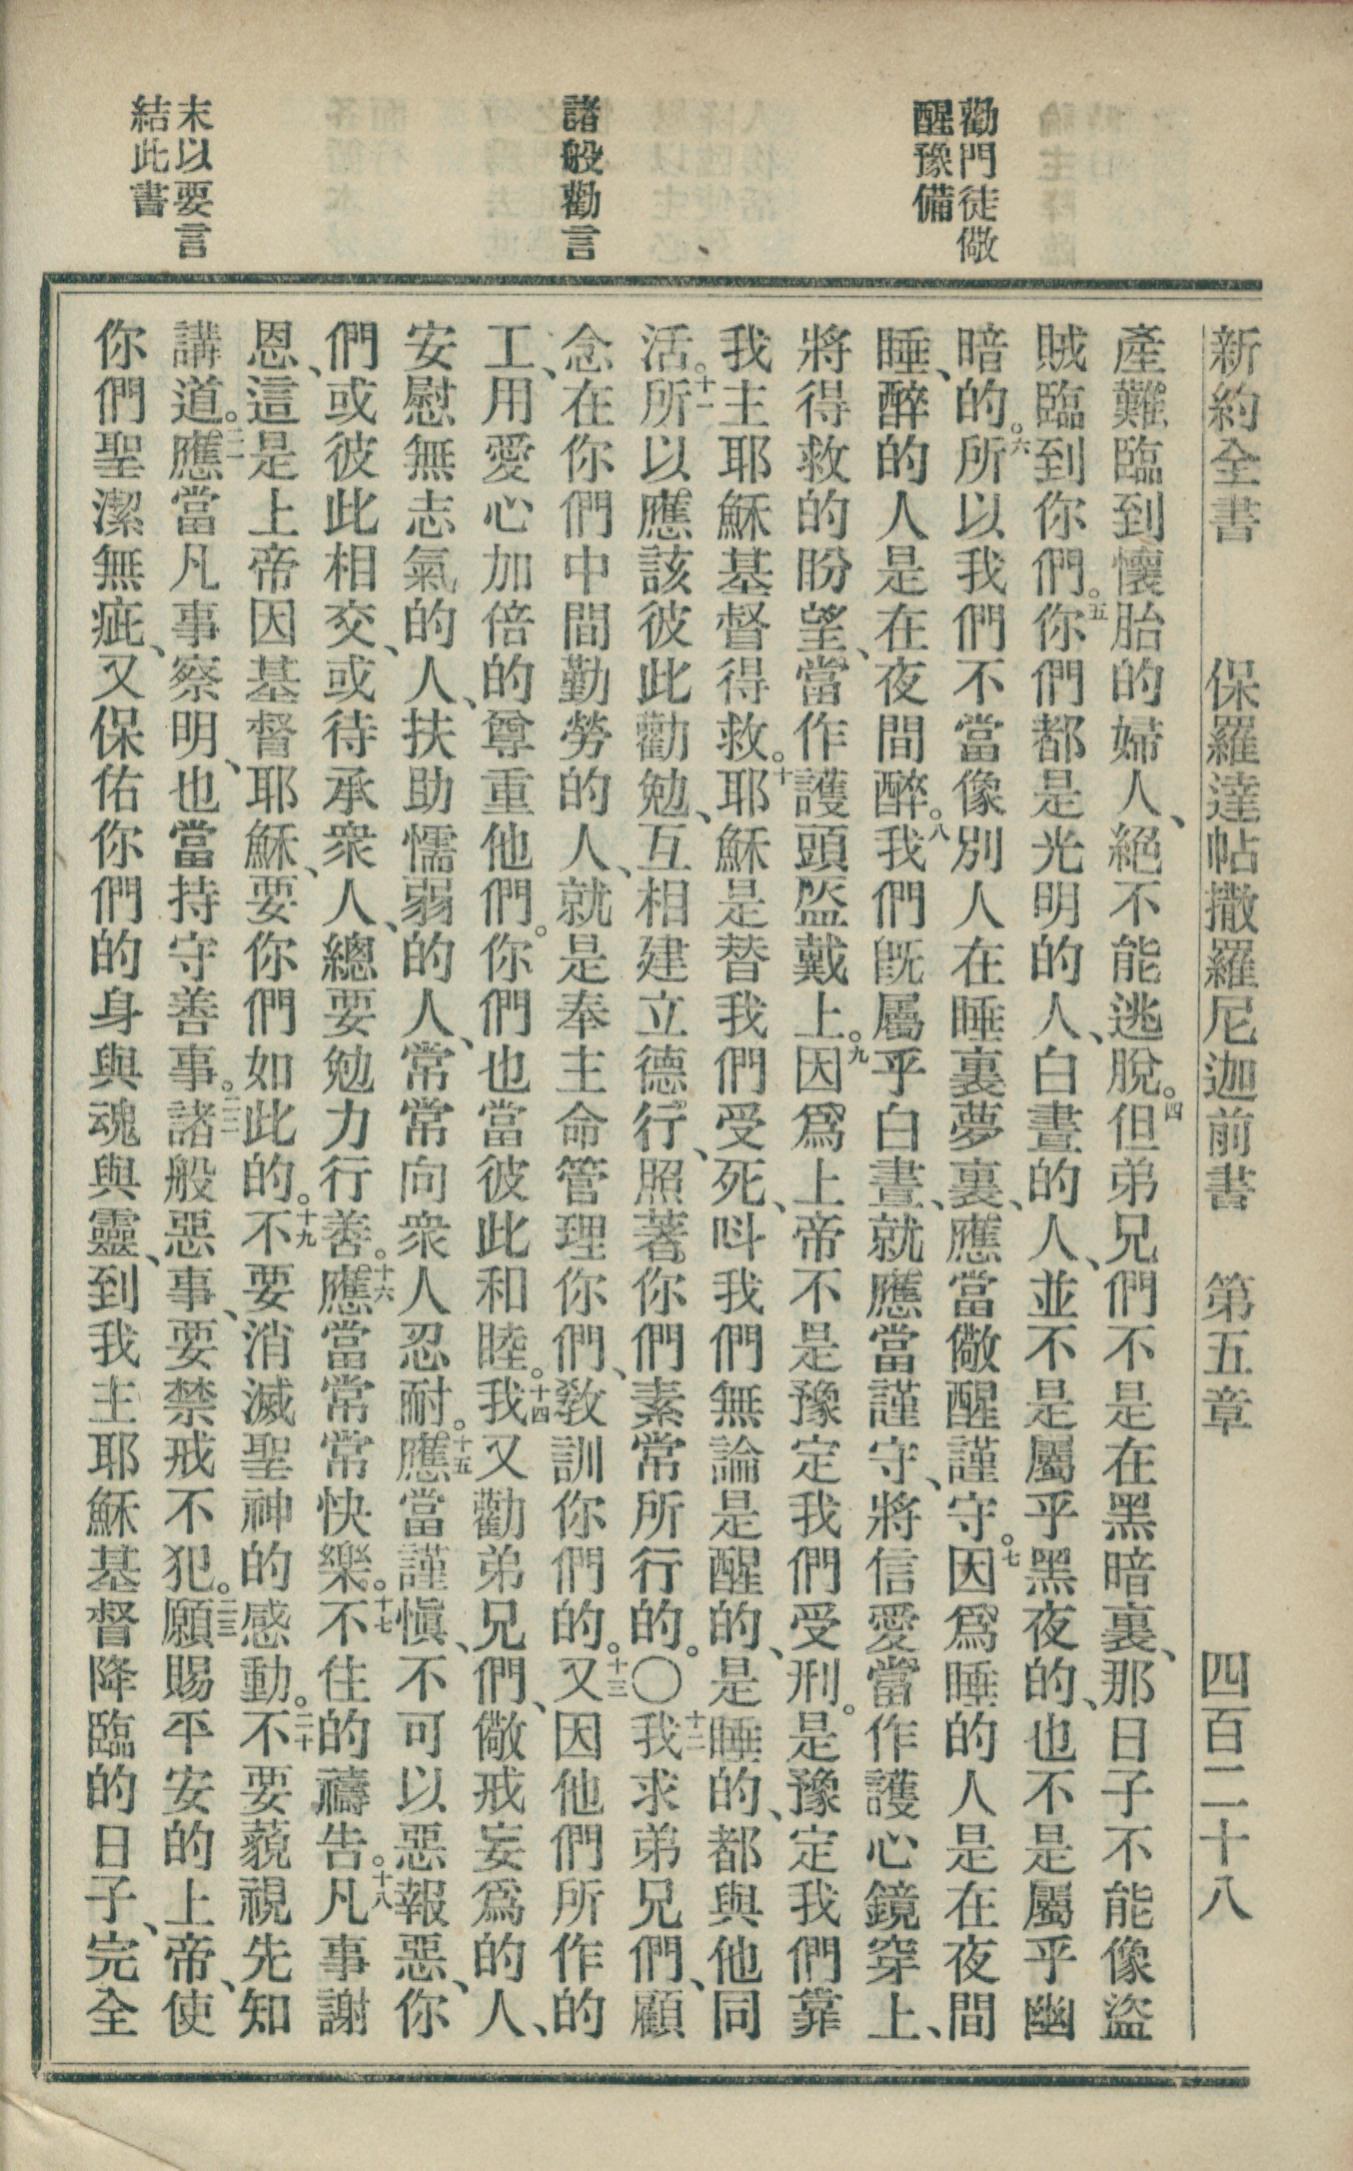 新約全書　保羅達帖撒羅尼迦前書　第五章　四百二十八
勸門徒儆
醒豫備
諸般勸言
末以要言
結此書
產難臨到懷胎的婦人、絕不能逃脫。四但弟兄們不是在黑暗裏、那日子不能像盜
賊臨到你們。五你們都是光明的人、白晝的人、並不是屬乎黑夜的、也不是屬乎幽
暗的。六所以我們不當像別人在睡裏夢裏、應當儆醒謹守。七因爲睡的人是在夜間
睡、醉的人是在夜間醉。八我們旣屬乎白晝、就應當謹守、將信愛當作護心鏡穿上、
將得救的盼望、當作護頭盔戴上。九因爲上帝不是豫定我們受刑。是豫定我們靠
我主耶穌基督得救。十耶穌是替我們受死、呌我們無論是醒的、是睡的、都與他同
活。十一所以應該彼此勸勉、互相建立德行、照著你們素常所行的。〇十二我求弟兄們、顧
念在你們中間勤勞的人、就是奉主命管理你們、敎訓你們的。十三又因他們所作的
工、用愛心加倍的尊重他們。你們也當彼此和睦。十四我又勸弟兄們、儆戒妄爲的人、
安慰無志氣的人、扶助懦弱的人、常常向衆人忍耐。十五應當謹愼、不可以惡報惡、你
們或彼此相交、或待承衆人、總要勉力行善。十六應當常常快樂。十七不住的禱告。十八凡事謝
恩、這是上帝因基督耶穌、要你們如此的。十九不要消滅聖神的感動。二十不要藐視先知
講道。二一應當凡事察明、也當持守善事。二二諸般惡事、要禁戒不犯。二三願賜平安的上帝、使
你們聖潔無疵、又保佑你們的身與魂與靈、到我主耶穌基督降臨的日子、完全